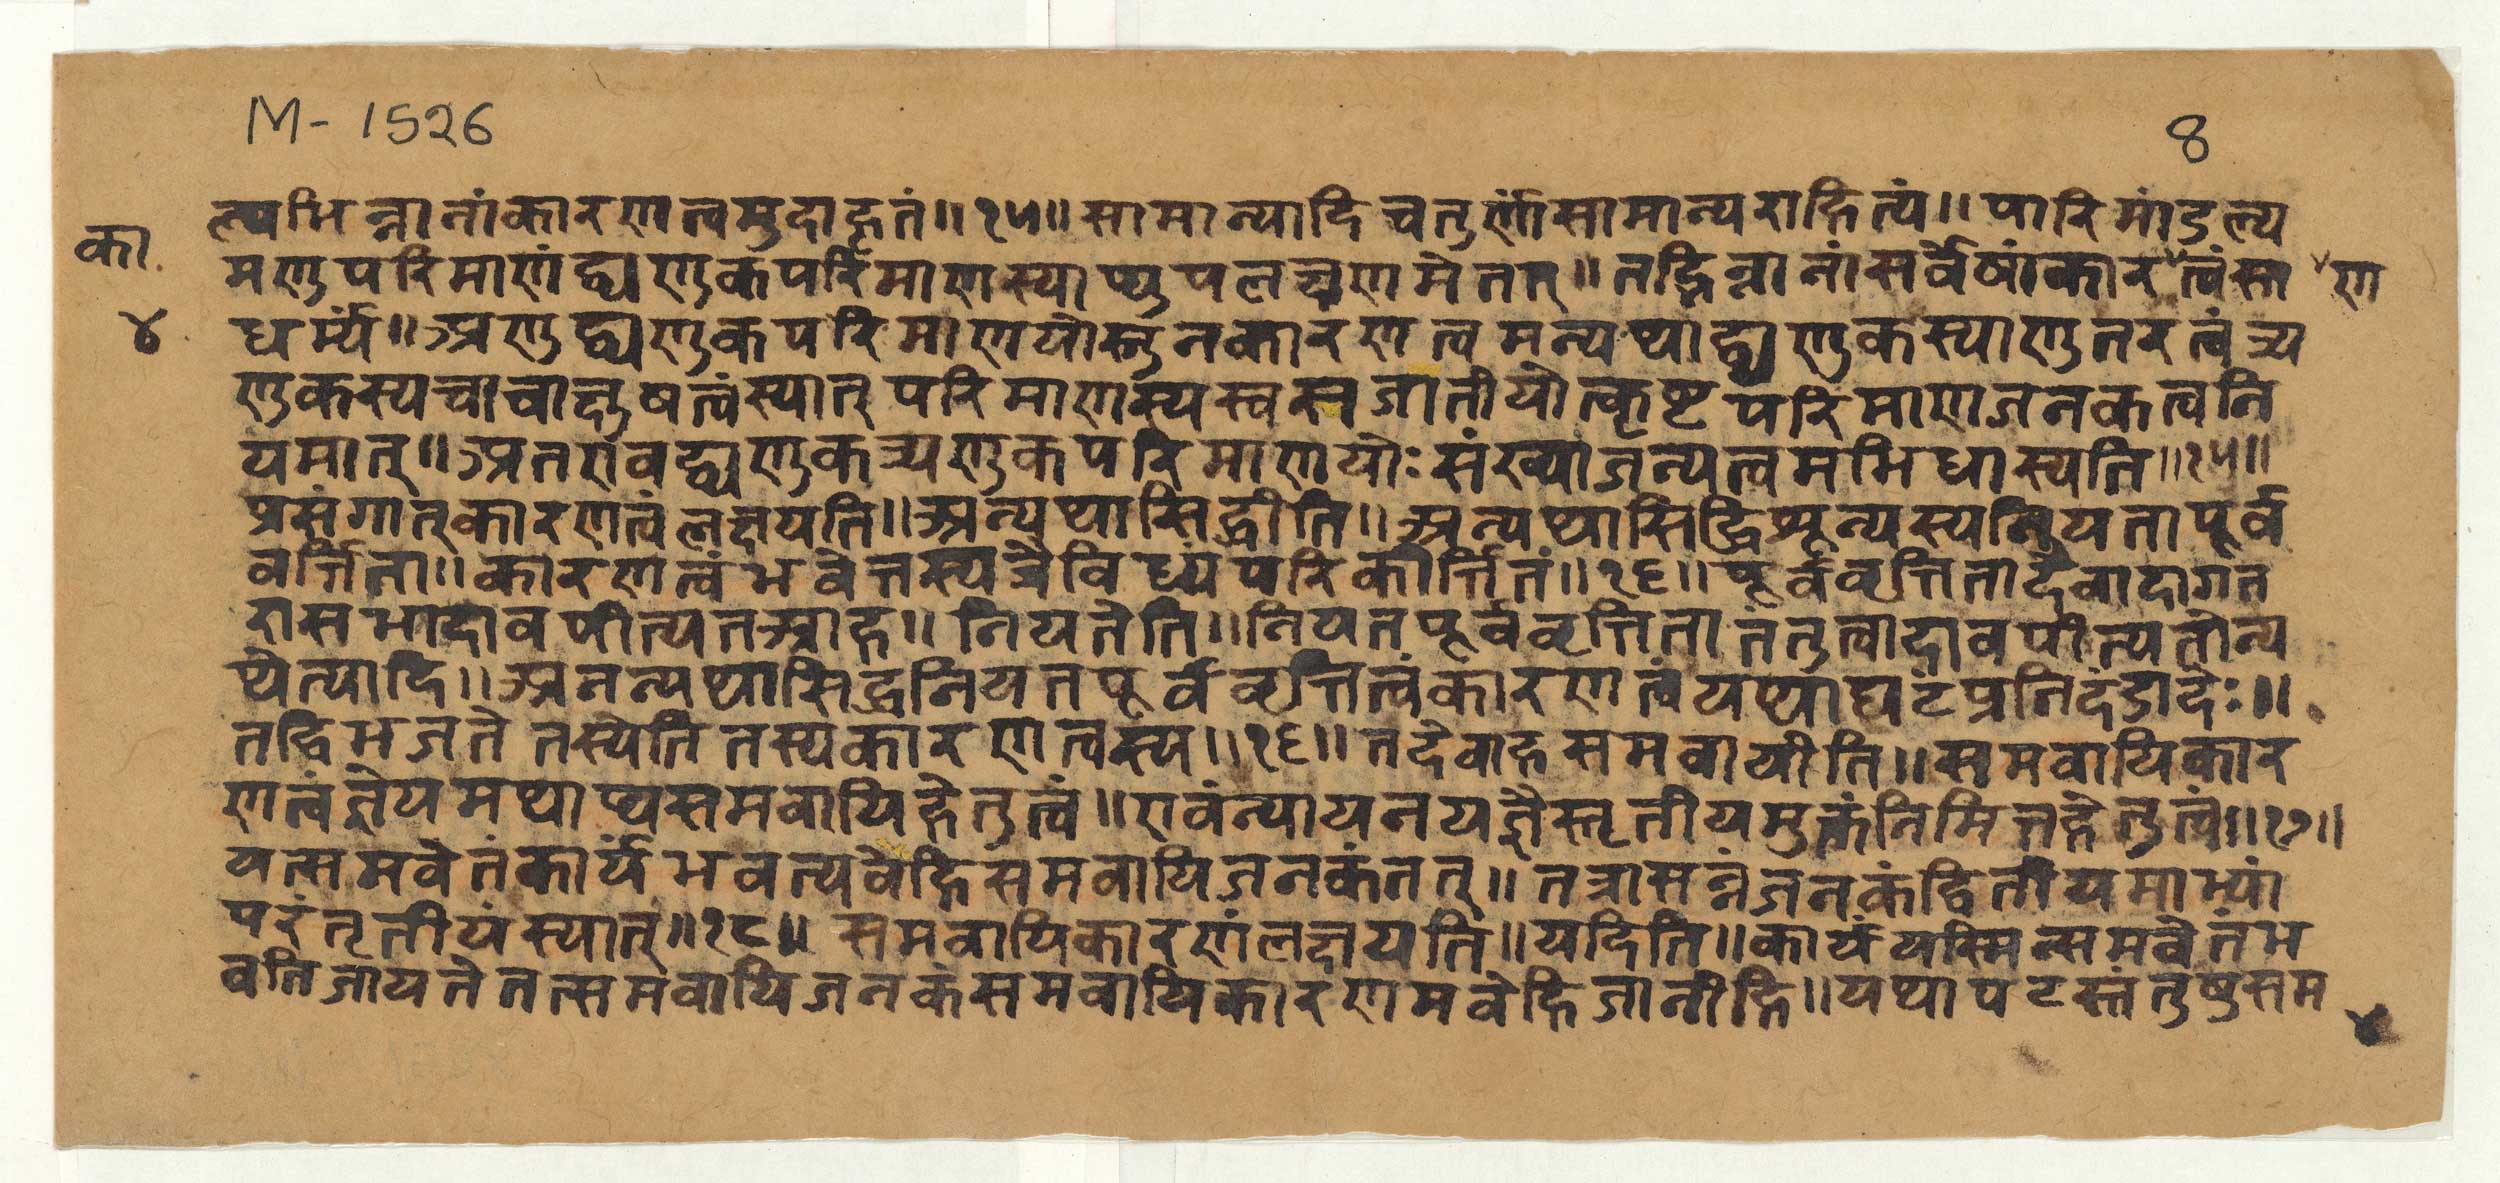 M-1526
8
ल्यभिन्नानांकारणत्वमुदाहृतं॥१५॥सामान्यादिचतुर्णांसामान्यराहित्यं॥पारिमांडल्य
का
मणुपरिमाणंद्व्यणुकपरिमाणस्याप्युपलक्षणमेतत्॥तद्भिन्नानांसर्वेषांकारत्वंसा
ण
४
धर्म्यं॥अणुद्व्यणुकपरिमाणयोस्तुनकारणत्वमन्यथाद्व्यणुकस्याणुतरत्वंत्र्य
णुकस्यचाचाक्षुषत्वंस्यात्परिमाणस्यस्वस्वजातीयोत्कृष्टपरिमाणजनकत्वनि
यमात्॥अतएवद्व्यणुकत्र्यणुकपरिमाणयोःसंख्याजन्यत्वमभिधास्यति॥१५॥
प्रसंगात्कारणत्वंलक्षयति॥अन्यथासिद्धीति॥अन्यथासिद्धिशून्यस्यनियतापूर्व
वर्त्तिता॥कारणत्वंभवेत्तस्यत्रैविध्यंपरिकीर्त्तितं॥१६॥पूर्ववृत्तितादैवादागत
रासभादावपीत्यतआह॥नियतेति॥नियतपूर्ववृत्तितातंतुत्वादावपीत्यतोन्य
थेत्यादि॥अनन्यथासिद्धनियतपूर्ववृत्तित्वंकारणत्वंयथाघटंप्रतिदंडादेः॥
तद्विभजतेतस्येतितस्यकारणत्वस्य॥१६॥तदेवाहसमवायीति॥समवायिकार
णत्वंज्ञेयमथाप्यसमवायिहेतुत्वं॥एवंन्यायनयज्ञैस्तृतीयमुक्तंनिमित्तहेतुत्वं॥१७॥
यत्समवेतंकार्यंभवत्यवेहिसमवायिजनकंतत्॥तत्रासन्नंजनकंद्वितीयमाभ्यां
परंतृतीयंस्यात्॥१८॥समवायिकारणंलक्षयति॥यदिति॥कार्यंयस्मिन्समवेतंभ
वतिजायतेतत्समवायिजनकंसमवायिकारणमवेहिजानीहि॥यथापटस्तंतुषुसम
४